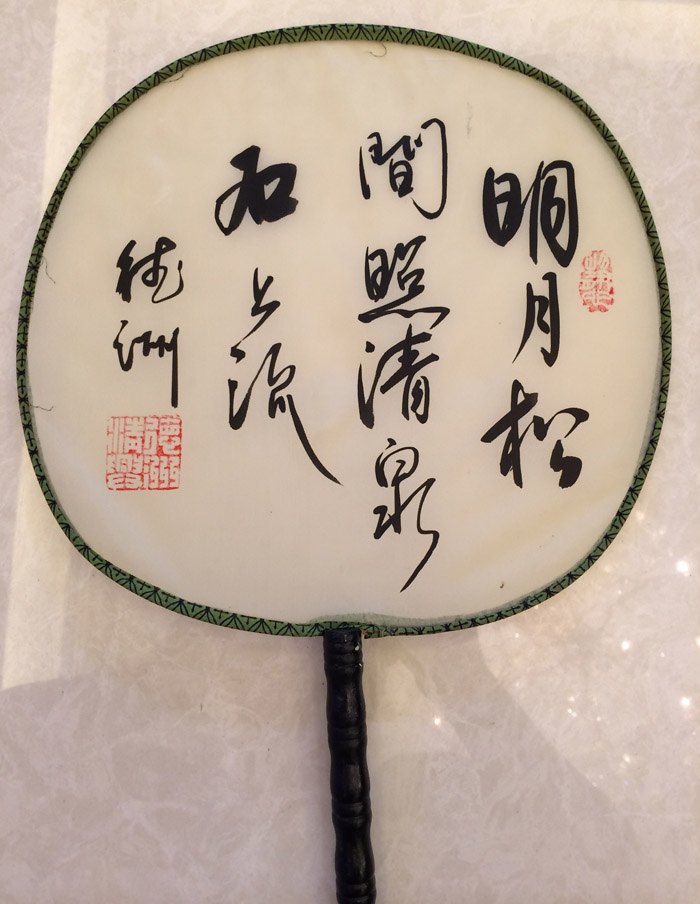 明月松
間照清泉
石上流
德洲